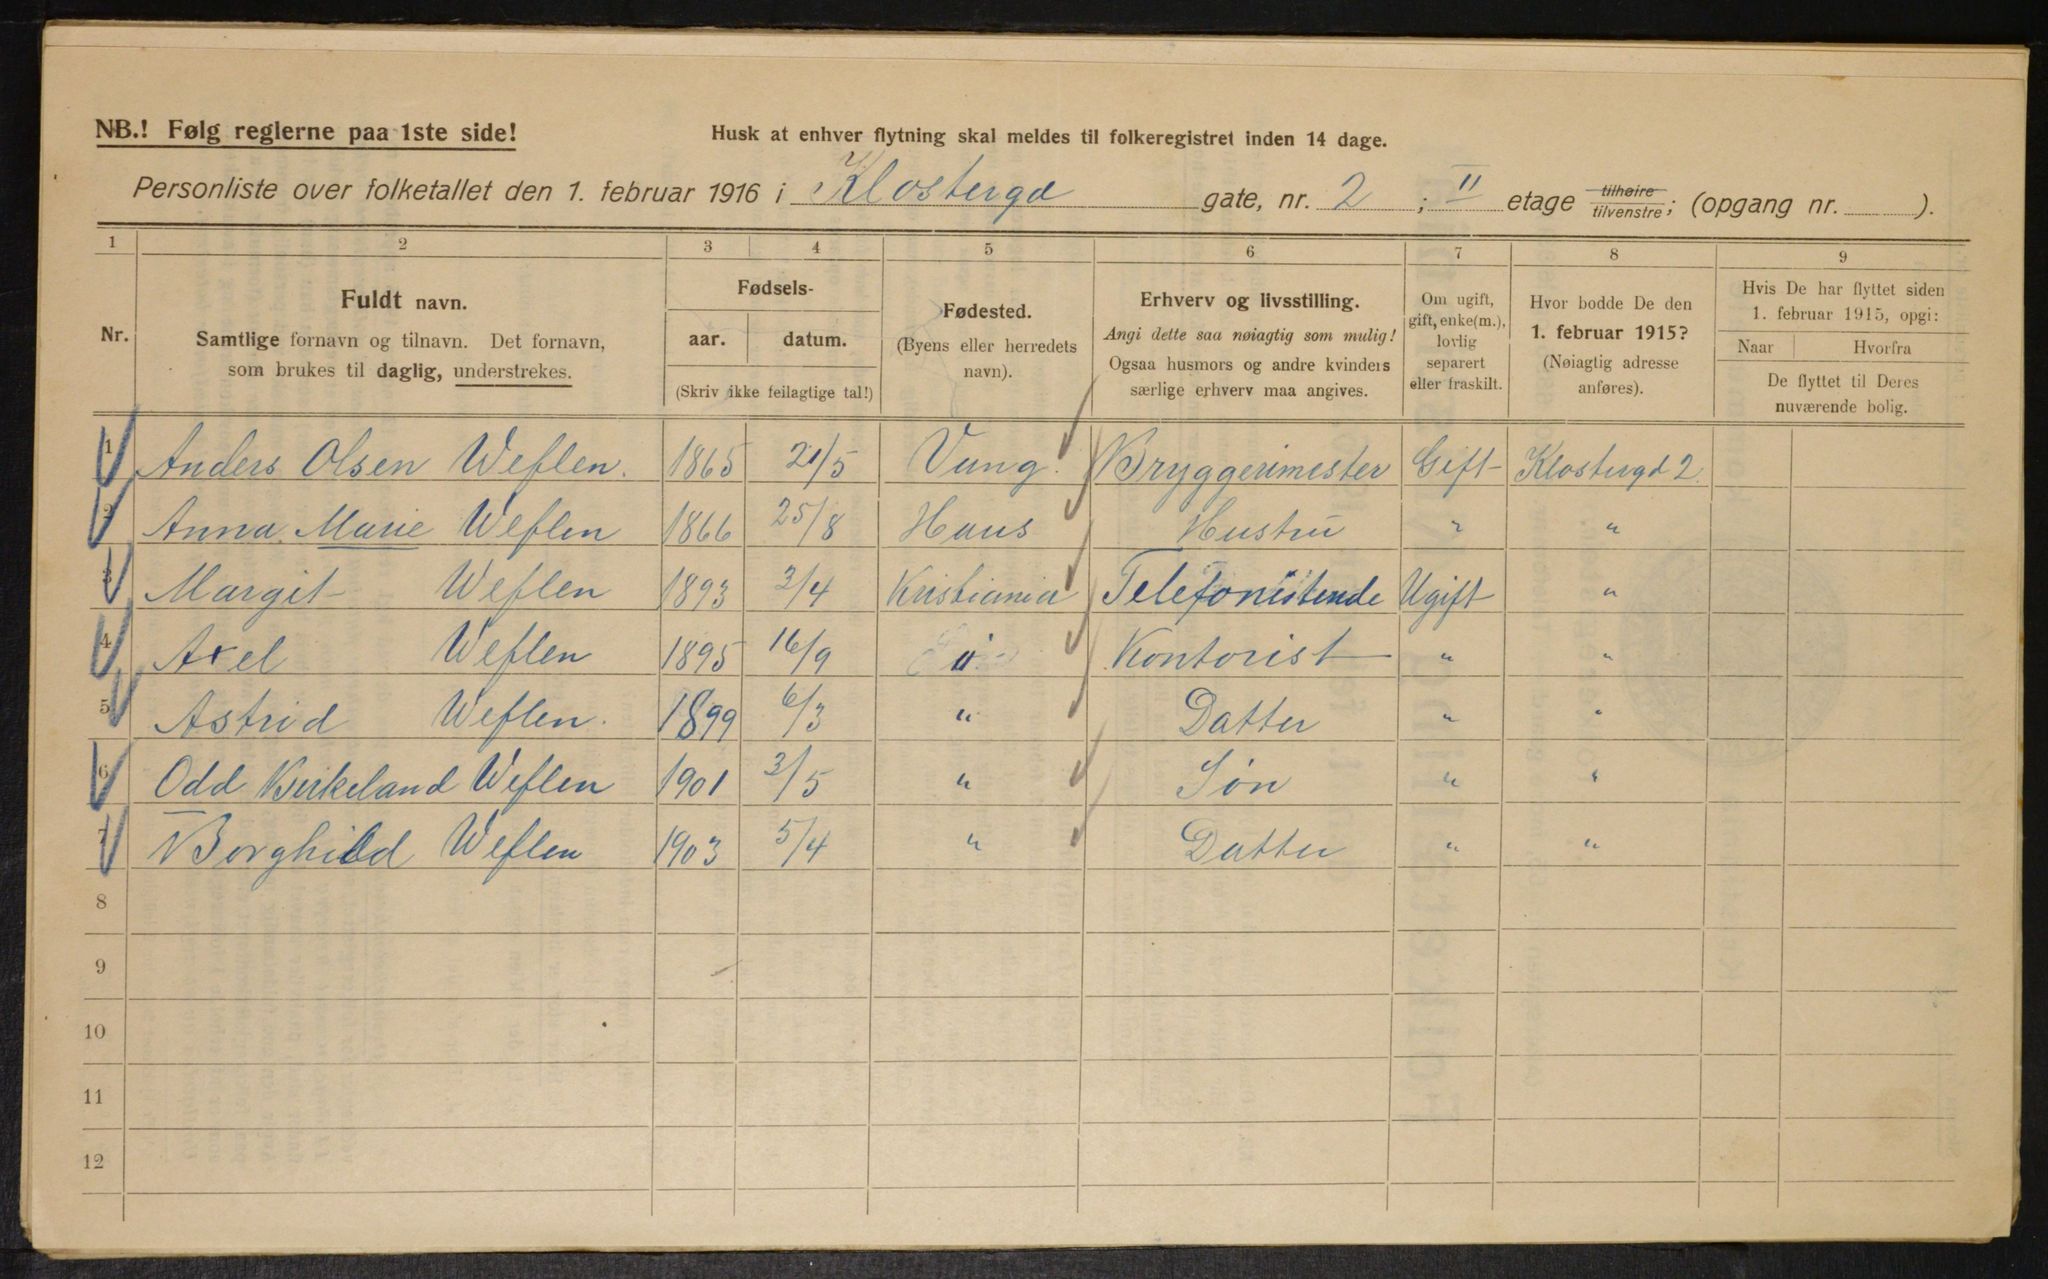 NB.! Følg reglerne paa 1ste side!
Husk at enhver flytning skal meldes til folkeregistret inden 14 dage.
Personliste over folketallet den 1. februar 1916 i Klostergd gate, nr. 2 ; II etage tilhøire/tilvenstre; (opgang nr. ).
1 2 3 4 5 6 7 8 9
Nr.
Fuldt navn.
Samtlige fornavn og tilnavn. Det fornavn,
som brukes til daglig, understrekes.
Fødsels-
aar. datum.
(Skriv ikke feilagtige tal!)
Fødested.
(Byens eller herredets
navn).
Erhverv og livsstilling.
Angi dette saa nøiagtig som mulig!
Ogsaa husmors og andre kvinders
særlige erhverv maa angives.
Om ugift,
gift, enke(m.),
lovlig
separert
eller fraskilt.
Hvor bodde De den
1. februar 1915?
(Nøiagtig adresse
anføres).
Hvis De har flyttet siden
1. februar 1915, opgi:
Naar Hvorfra
De flyttet til Deres
nuværende bolig.
1 Anders Olsen Weflen. 1865 21/5 Vang. Bryggerimester Gift Klostergd 2.
2 Anna Marie Weflen 1866 25/8 Haus Hustru " "
3 Margit Weflen 1893 3/4 Kristiania Telefonistinde Ugift "
4 Axel Weflen 1895 16/9 " Kontorist " "
5 Astrid Weflen. 1899 6/3 " Datter " "
6 Odd Birkeland Weflen 1901 3/5 " Søn " "
7 Borghild Weflen 1903 5/4 " Datter " "
8
9
10
11
12